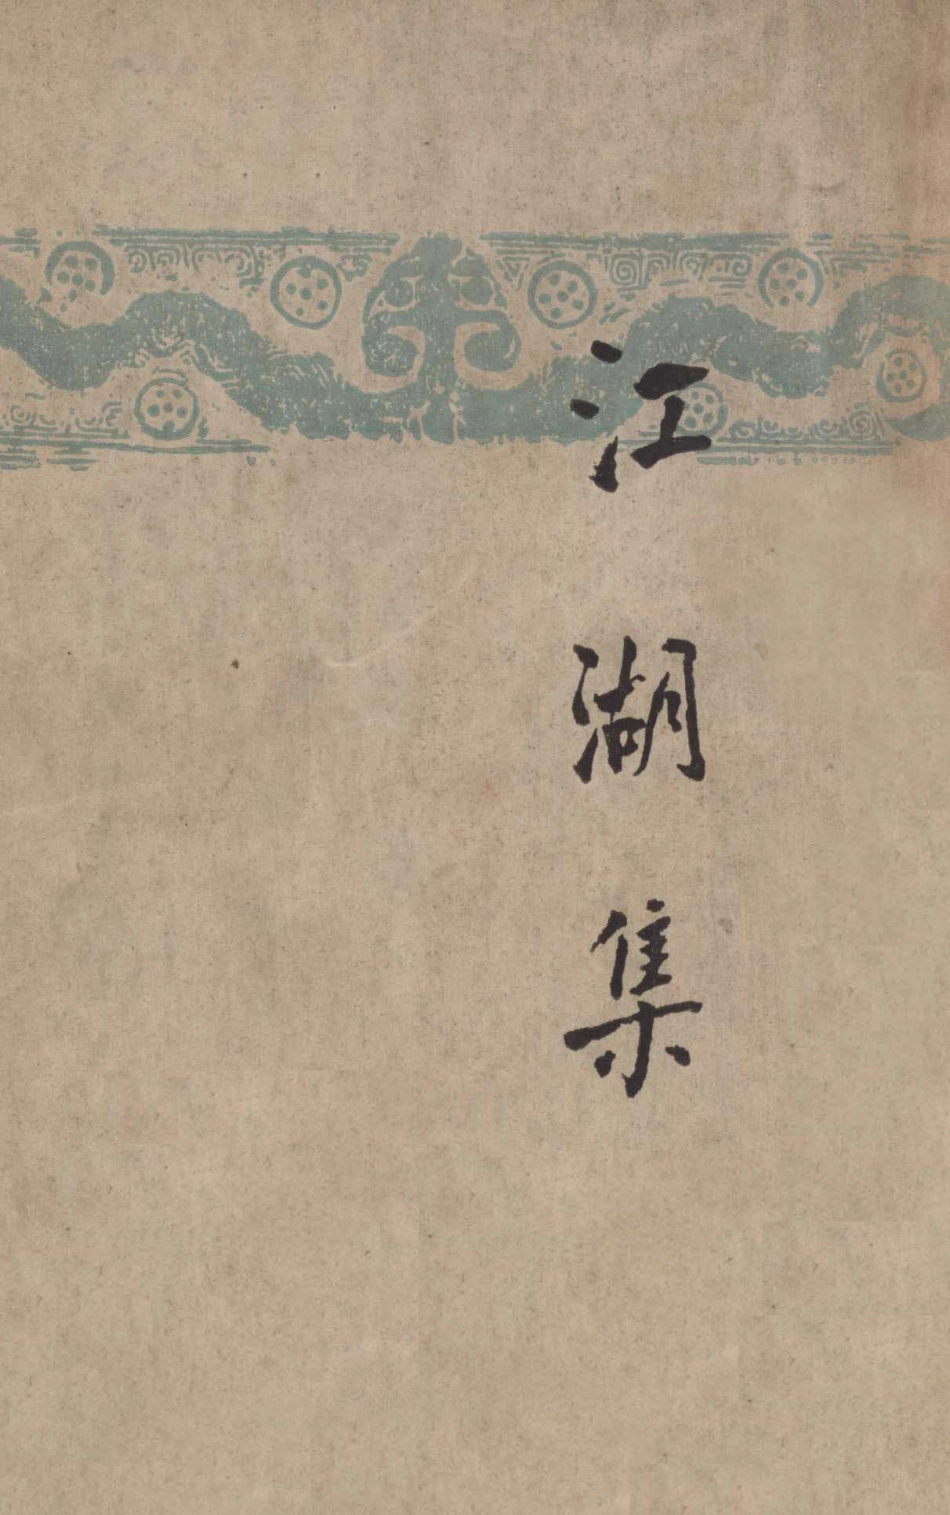 江湖集